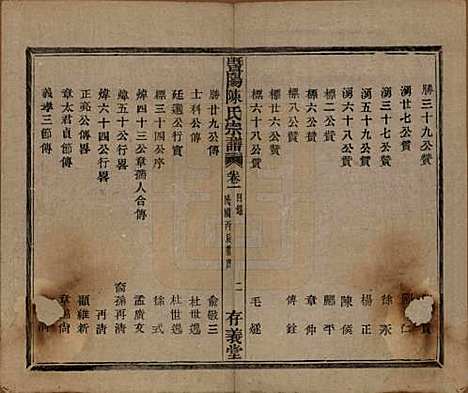 勝三十九公贊
湧廿七公贊
湧三十七公贊 徐永
湧五十九公贊 楊正
湧六十八公贊 陳俟
標二公贊 鄭平
標八公贊 章仲
標六十公贊 傅銓
標六十八公贊 毛遂
暨陽陳氏宗譜 卷一 目錄 二 存義堂
勝廿九公傳 俞敬三
士科公傳 杜世遇
廷選公行實 杜世遇
標三十四公序 徐弌
煒四十三公章孺人合傳 孟廣友
煒五十公行畧 裔孫再清
煒六十四公行畧 再清
正亮公傳畧 顧維新
章太君貞節傳
義孝三節傳